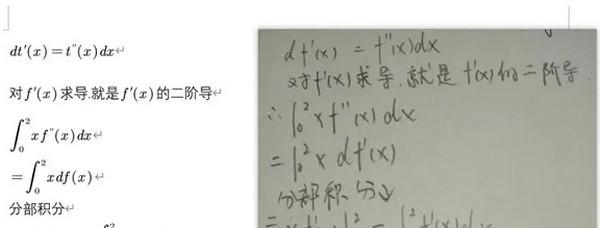 dt′(x)=t″(x)dx
对f′(x)求导.就是f′(x)的二阶导
∫₀²xf″(x)dx
=∫₀²xdf(x)
分部积分
df′(x) = f″(x)dx
对f′(x)求导.就是f′(x)的二阶导.
∴∫₀²xf″(x)dx
=∫₀²xdf′(x)
分部积分